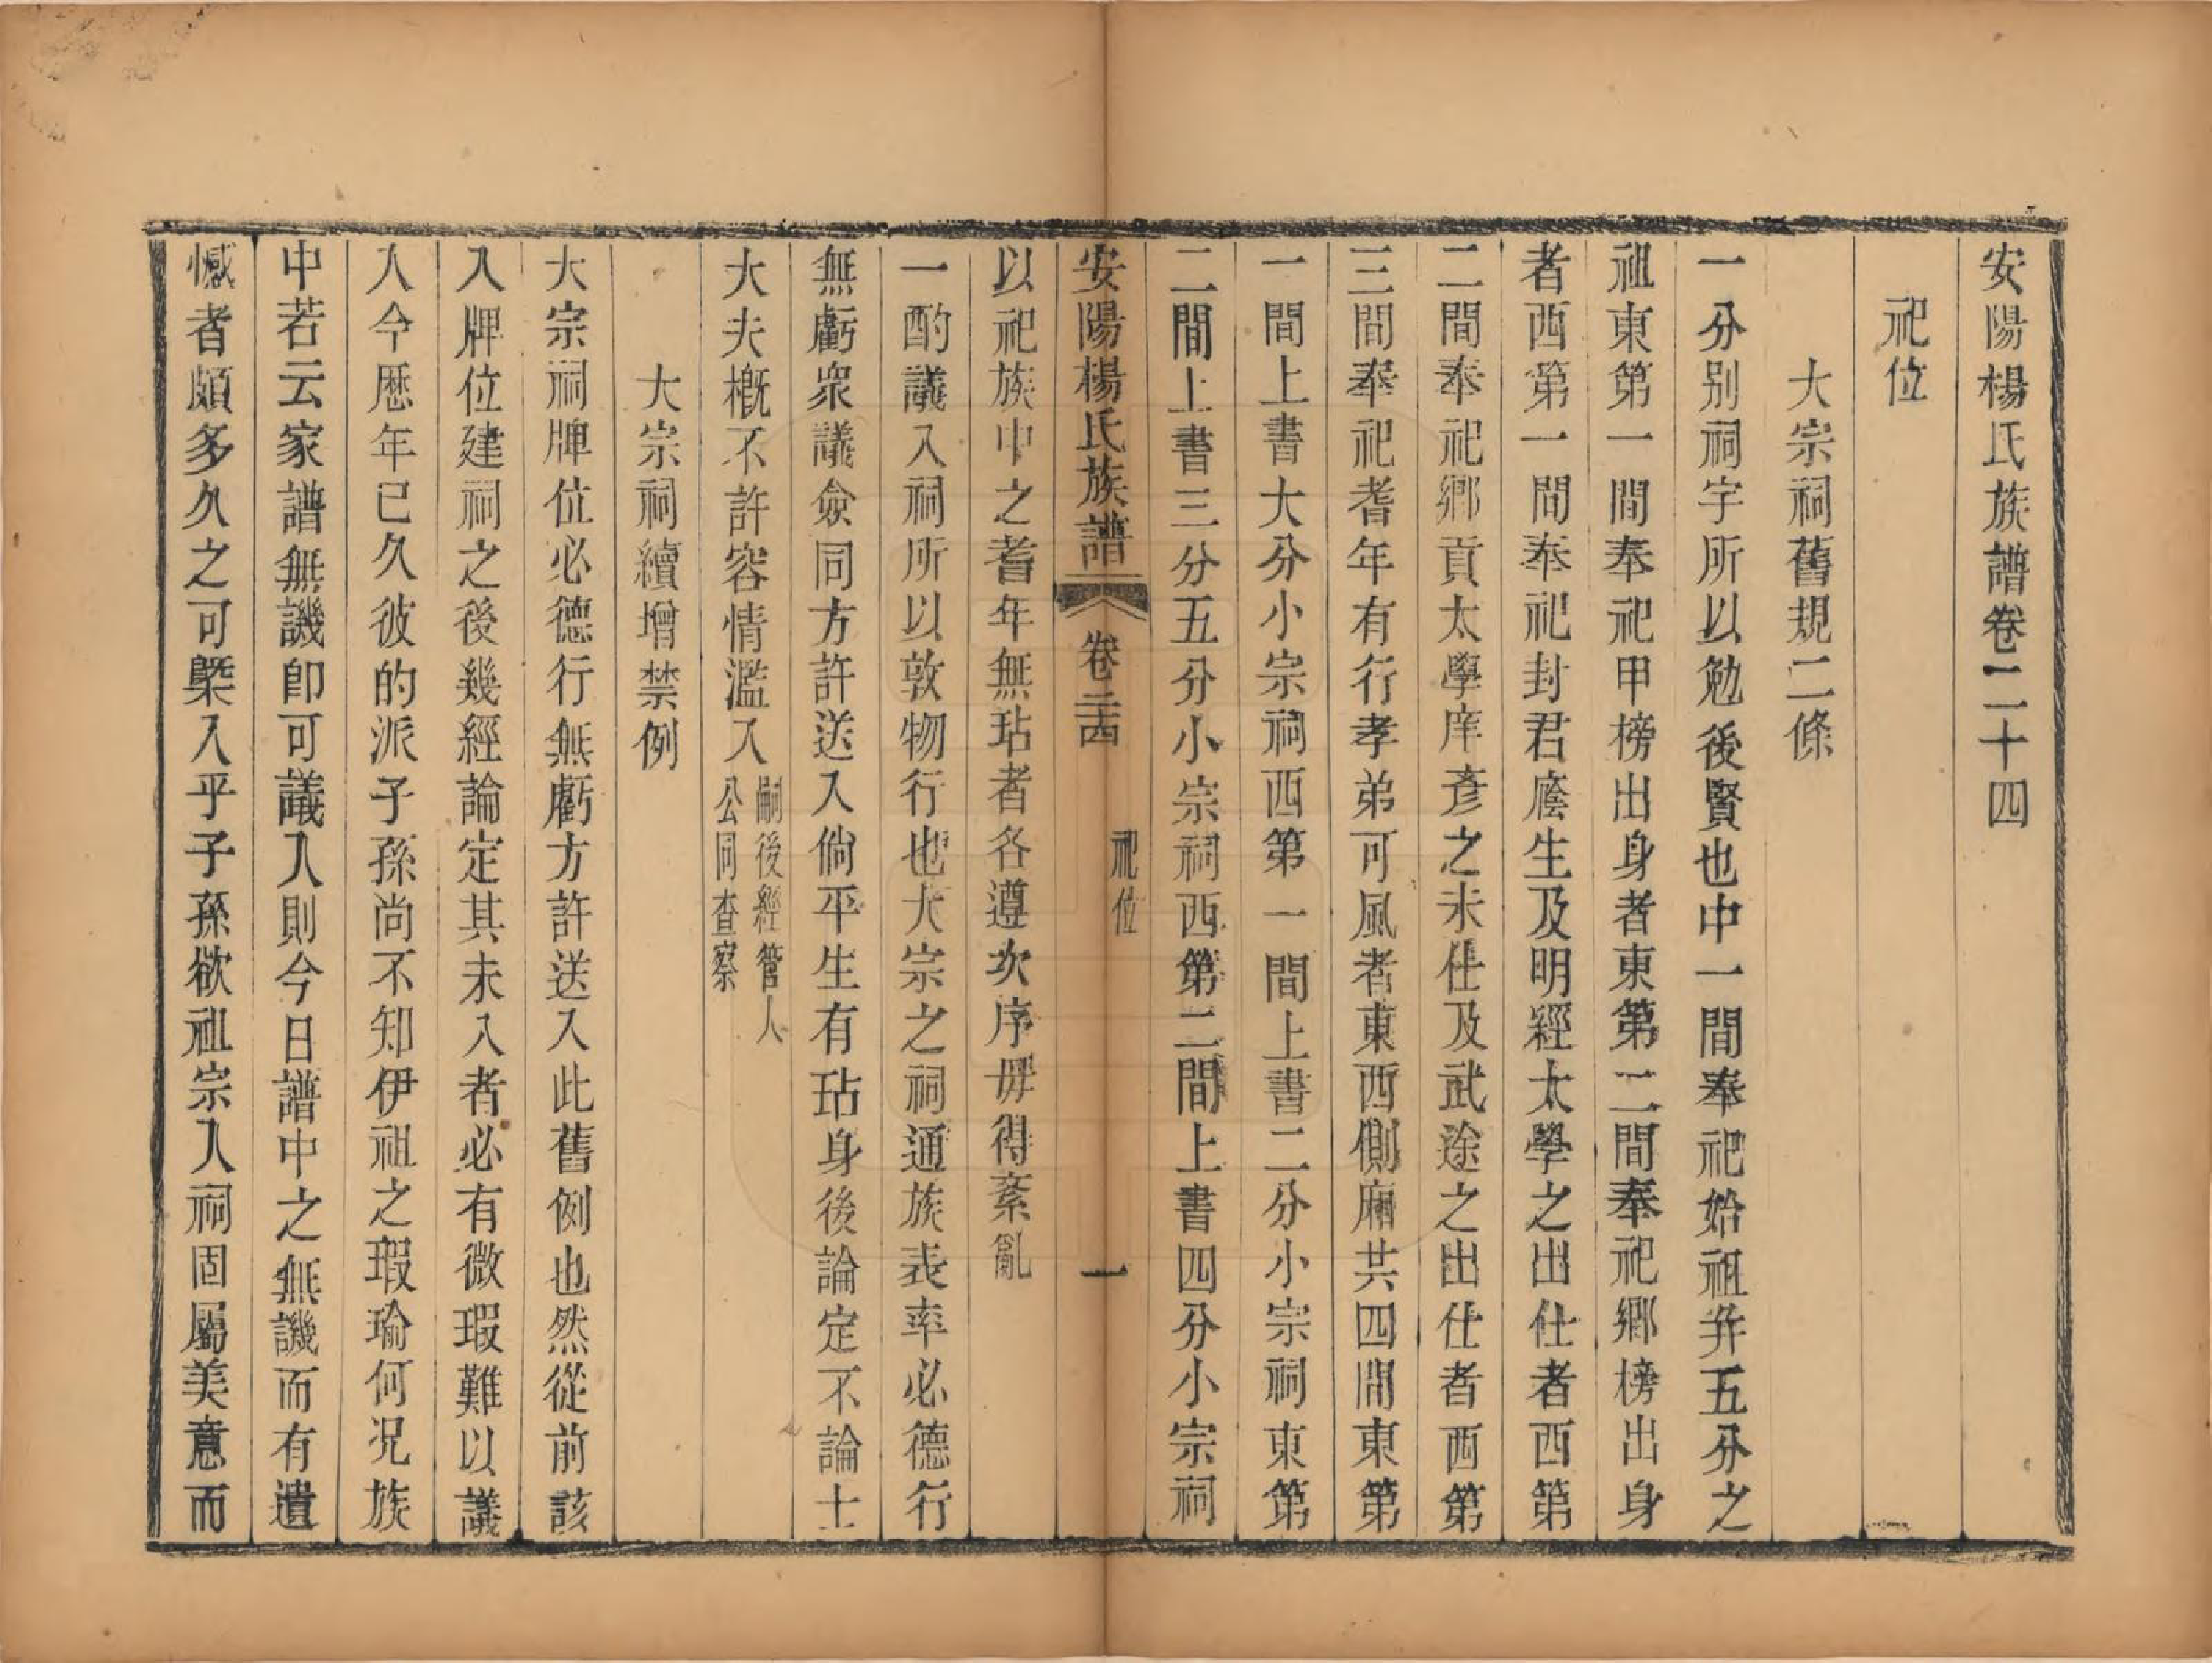 安陽楊氏族譜卷二十四
祀位
大宗祠舊規二條
一分别祠宇所以勉後賢也中一間奉祀始祖并五分之
祖東第一間奉祀甲榜出身者東第二間奉祀鄉榜出身
者西第一間奉祀封君廕生及明經太學之出仕者西第
二間奉祀鄉貢太學庠彥之未仕及武途之出仕者西第
三間奉祀耆年有行孝弟可風者東西側廂共四間東第
一間上書大分小宗祠西第一間上書二分小宗祠東第
二間上書三分五分小宗祠西第二間上書四分小宗祠
安陽楊氏族譜 卷二十四 祀位 一
以祀族中之耆年無玷者各遵次序毋得紊亂
一酌議入祠所以敦物行也大宗之祠通族表率必德行
無虧衆議僉同方許送入倘平生有玷身後論定不論士
大夫槪不許容情濫入嗣後經管人公同查察
大宗祠續增禁例
大宗祠牌位必德行無虧方許送入此舊例也然從前該
入牌位建祠之後幾經論定其未入者必有微瑕難以議
入今歷年已久彼的派子孫尚不知伊祖之瑕瑜何況族
中若云家譜無譏卽可議入則今日譜中之無譏而有遺
憾者頗多久之可槩入乎子孫欲祖宗入祠固屬美意而